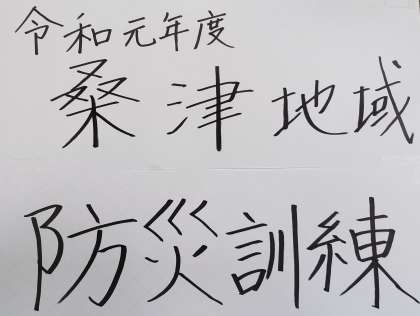 令和元年度
桑津地域
防災訓練